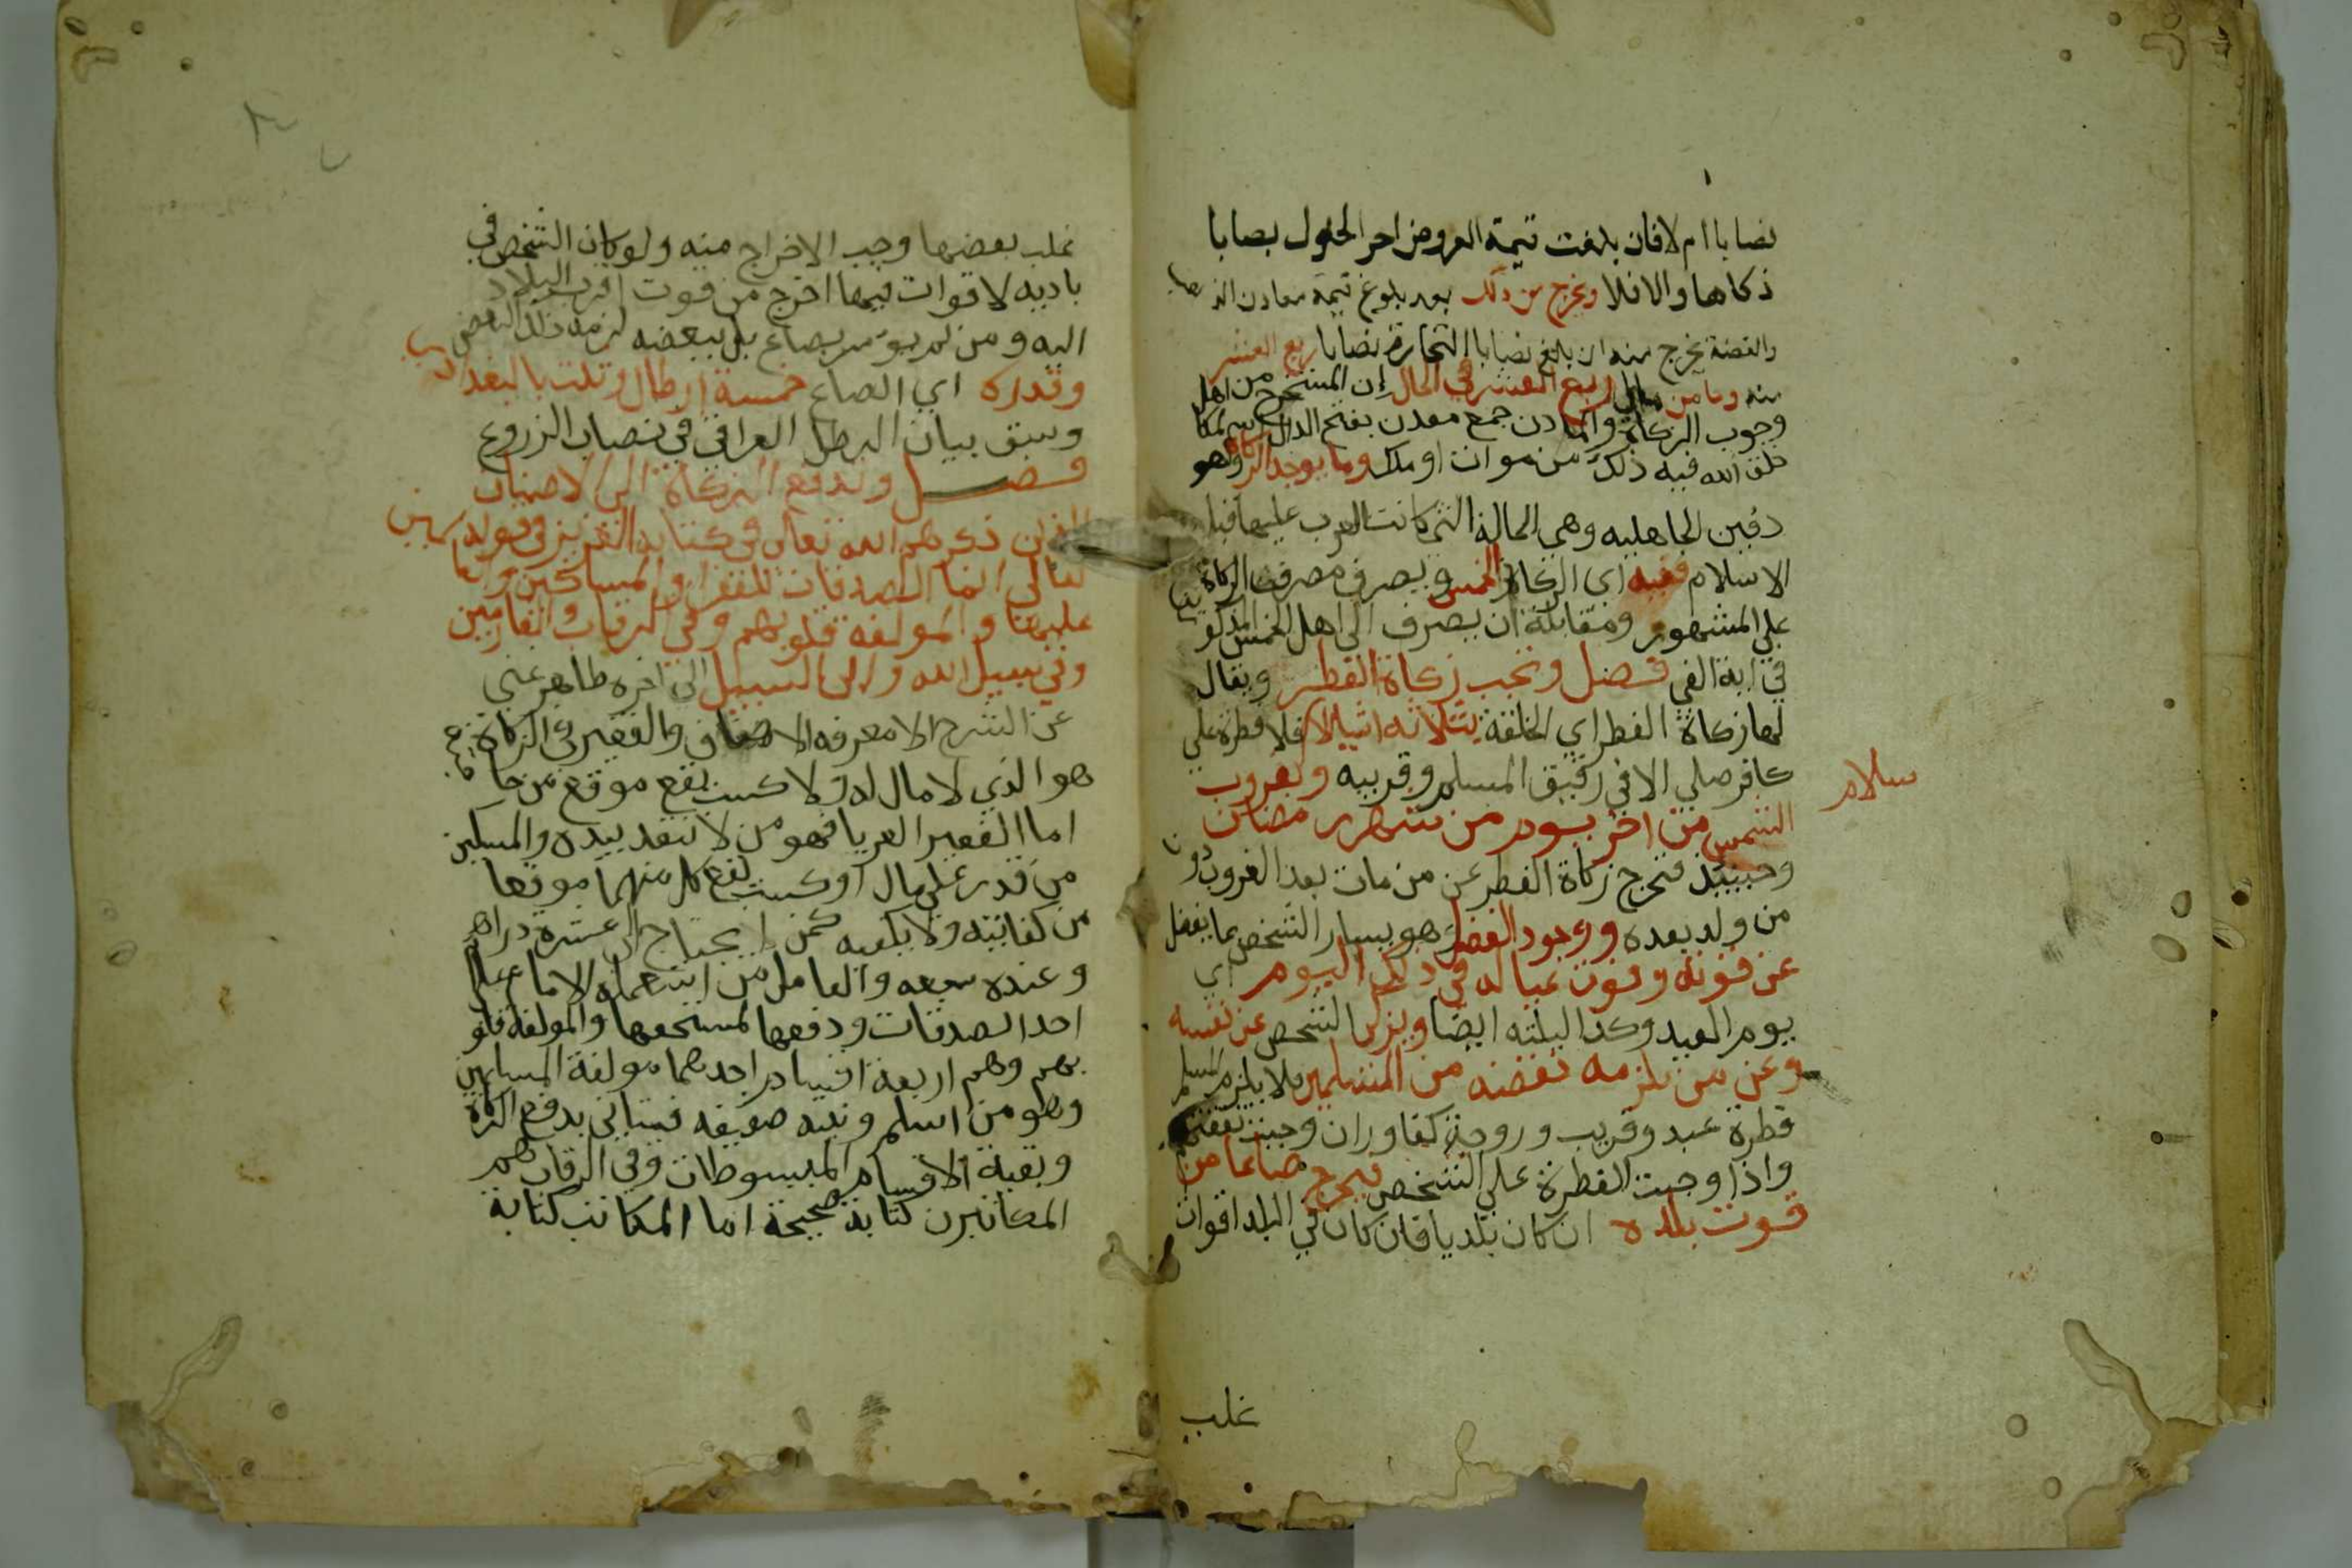 نصابا ام لا فان بلغت قيمة العروض اخر الحول نصابا
زكاها والا فلا ويخرج من ذلك بعد بلوغ قيمة
والفضة يخرج منه ان بلغ نصابا التجارة نصابا ربع العشر
منه وما من ربع العشر في الحال إن المستخرج من اهل
وجوب الزكاة والمعادن جمع معدن بفتح الدال
خلق الله فيه ذلك من موات او ملك وما يوجد الركاز وهو
دفين الجاهليه وهي الحالة التي كانت العرب عليها قبل
الاسلام ففيه اي الركاز الخمس ويصرف مصرف الزكاة
علي المشهور ومقابلة ان يصرف الي اهل الخمس المذكور
في اية الفي فصل وتجب زكاة الفطر ويقال
لها زكاة الفطر اي الخلقة بثلاثه اشيا الا فلا فطرة علي
سلام
كافر صلي الا في رقيق المسلم وقريبه وبغروب
الشمس من اخر يوم من شهر رمضان
وحينيذ فتخرج زكاة الفطر عن من مات بعد الغروب دون
من ولد بعده ووجود الفضل وهو يسار الشخص بما يفضل
عن قوته وقوت عياله في ذلك اليوم اي
يوم العيد وكذا اليلته ايضا ويزكي الشخص عن نفسه
وعن من يلزمه نفقته من المسلمين فلا يلزم المسلم
فطرة عبد وقريب وزوجة كفا وان وجبت نفقتهم
واذا وجبت الفطرة علي الشخص فيخرج صاعا من
قوت بلده ان كان بلديا فان كان في البلد اقوات
غلب
غلب بعضها وجب الاخراج منه ولو كان الشخص في
باديه لا قوات فيها اخرج من قوت اقرب البلاد
اليه ومن لم يوسر بصاع بل ببعضه لزمه ذلك البعض
وقدره اي الصاع خمسة ارطال وثلث بالبغدادي
وسبق بيان الرطل العراقي في نصاب الزروع
فصل وتدفع الزكاة الي الاصناف
ذكرهم الله تعالي في كتابه العزيز في قوله
تعالي انما الصدقات للفقرا والمساكين والعاملين
عليها والمولفه قلوبهم وفي الرقاب والغارمين
وفي سبيل الله وابن السبيل الي اخره ظاهر غني
عن الشرح الا معرفه الاصناف فالفقير في الزكاة
هو الذي لا مال له ولا كسب يقع موقع من حا
اما الفقير العرايا فهو من لا نقد بيده والمسكين
من قدر علي مال او كسب يقع كل منهما موقعا
من كفايته ولا يكفيه كمن يحتاج الي عشرة دراهم
وعنده سبعه والعامل من استعمله الامام علي
اخد الصدقات ودفعها لمستحقها والمولفة قلو
بهم وهم اربعة اقسام احدهما مولفة المسلمين
وهو من اسلم ونيته ضعيفه فيتالف بدفع الزكاة
وبقية الاقسام المبسوطات وفي الرقاب هم
المكاتبون كتابة صحيحة اما المكاتب كتابة